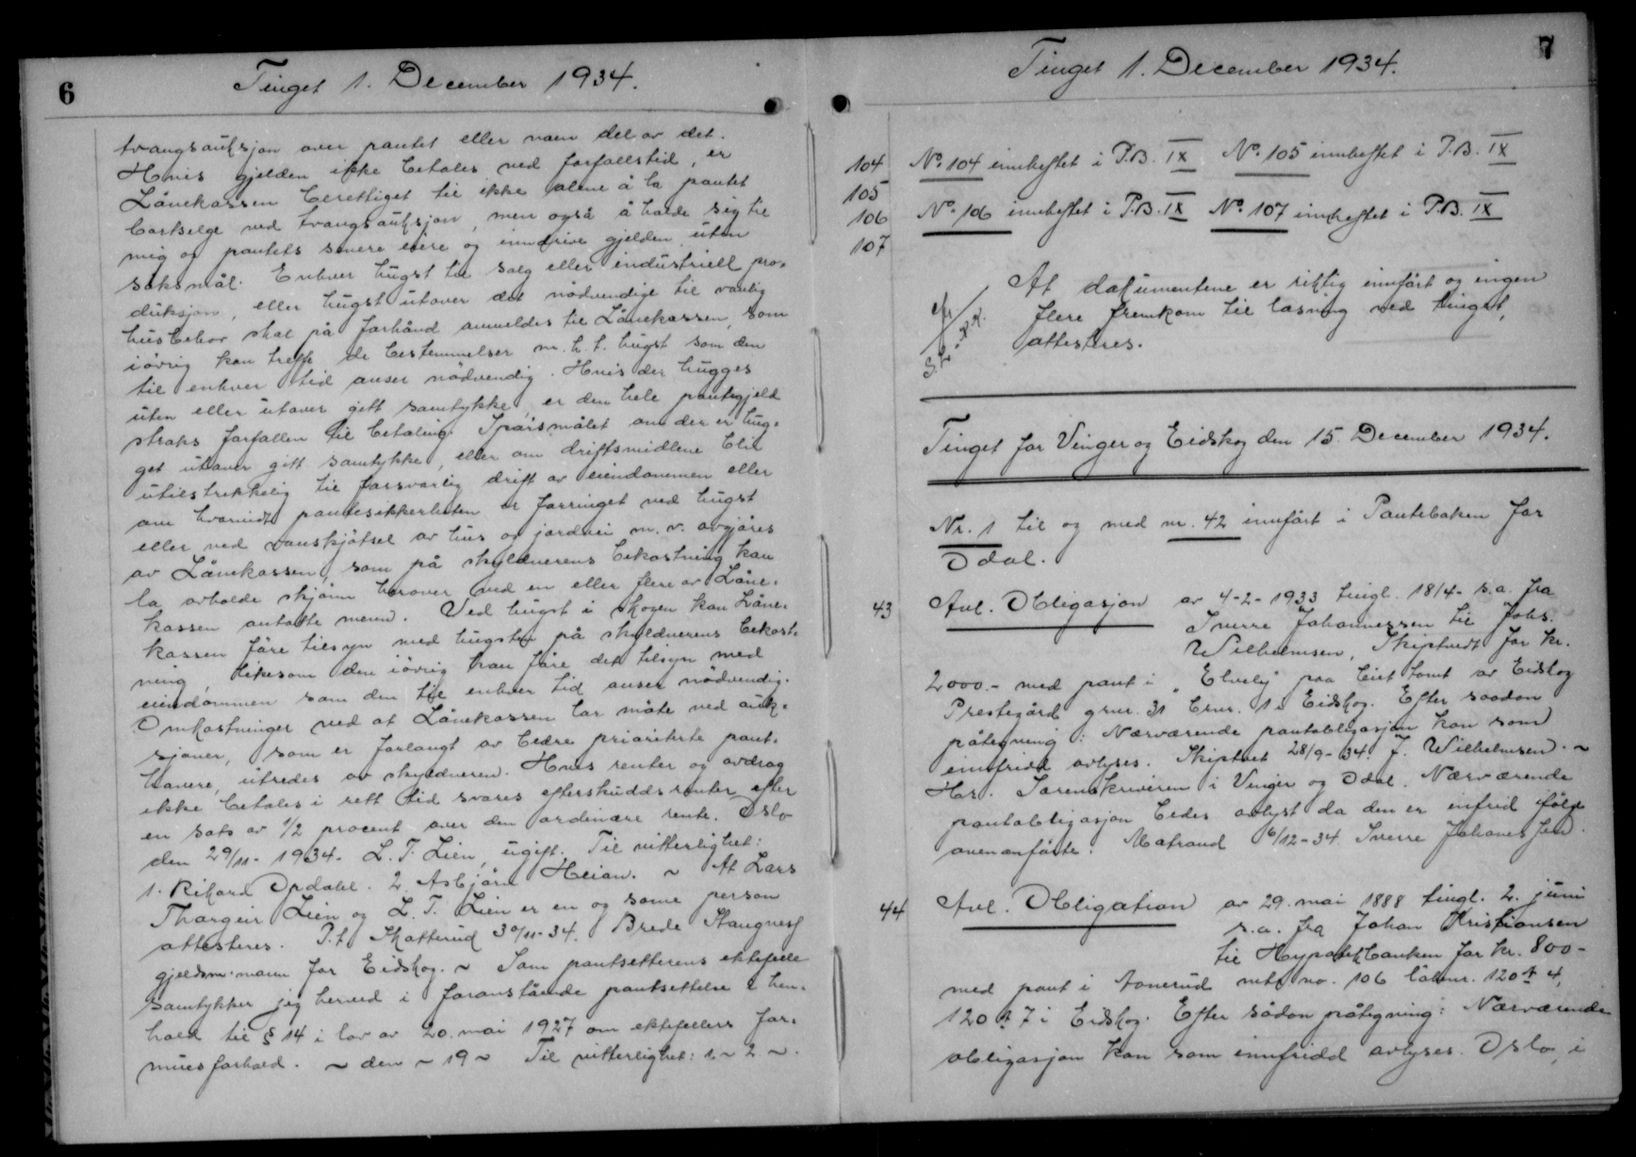 6
Tinget 1. December 1934.
tvangsauksjon over pantet eller noen del av det.
Hvis gjelden ikke betales ved forfallstid, er
Lånekassen berettiget til ikke alene å la pantet
bortselge ved tvangsauksjon, men også å holde sig til
mig og pantets senere eiere og inndrive gjelden uten
søksmål. Enhver hugst til salg eller industriell pro-
duksjon, eller hugst utover det nödvendige til vanlig
husbehov skal på forhånd anmeldes til Lånekassen, som
iövrig kan treffe de bestemmelser m. h. t. hugst som den
til enhver tid anser nödvendig. Hvis der hugges
uten eller utover gitt samtykke, er den hele pantegjeld
straks forfallen til betaling. Spörsmålet om der er hug-
get utover gitt samtykke, eller om driftsmidlene blir
utilstrekkelig til forsvarlig drift av eiendommen eller
om hvorvidt pantesikkerheten er forringet ved hugst
eller ved vanskjötsel av hus og jordvei m. v. avgjöres
av Lånekassen, som på skyldnerens bekostning kan
la avholde skjönn herover ved en eller flere av Låne-
kassen antatte menn. Ved hugst i skogen kan Låne-
kassen före tilsyn med hugsten på skyldnerens bekost-
ning, likesom den iövrig kan före det tilsyn med
eiendommen som den til enhver tid anser nödvendig.
Omkostninger ved at Lånekassen lar möte ved auk-
sjoner, som er forlangt av bedre prioriterte pant-
havere, utredes av skyldneren. Hvis renter og avdrag
ikke betales i rett tid svares efterskuddsrenter efter
en sats av 1/2 procent over den ordinære rente. Oslo
den 29/11- 1934. L. T. Lien, ugift. Til vitterlighet:
1. Rikard Opdahl. 2. Asbjörn Heian. ~ At Lars
Thorgeir Lien og L. T. Lien er en og same person
attesteres. P.t. Skotterud 30/11-34. Brede Stangnes
gjeldsm.mann for Eidskog. ~ Som pantsetterens ektefelle
samtykker jeg herved i foranstående pantsettelse i hen-
hold til § 14 i lov av 20. mai 1927 om ektefellers for-
muesforhold. ~ den ~ 19 ~ Til vitterlighet: 1. ~ 2 ~.
7
Tinget 1. December 1934.
104 No. 104 innheftet i P.B. IX No. 105 innheftet i P.B. IX
105
106 No. 106 innheftet i P.B. IX No. 107 innheftet i P.B. IX
107
At dokumentene er riktig innfört og ingen
flere fremkom til læsning ved tinget,
attesteres.
Tinget for Vinger og Eidskog den 15 December 1934.
Nr. 1 til og med nr. 42 innfört i Panteboken for
Odal.
43 Avl. Obligasjon av 4-2-1933 tingl. 18/4- s.a. fra
Sverre Johannessen til Johs.
Wilhelmsen, Skiptvedt for kr.
2000.- med pant i "Elvely" paa leiet tomt av Eidskog
Prestegård grnr. 31 brnr. 1 i Eidskog. Efter saadan
påtegning: Nærværende pantobligasjon kan som
innfridd avlyses. Skiptvet 28/9-34. J. Wilhelmsen. ~
Hr. Sorenskriveren i Vinger og Odal. Nærværende
pantobligasjon bedes avlyst da den er infrid ifölge
ovenanförte. Matrand 6/12-34. Sverre Johannessen.
44 Avl. Obligation av 29. mai 1888 tingl. 2. juni
s.a. fra Johan Kristiansen
til Hypotekbanken for kr. 800-
med pant i Aonerud mtr. no. 106 löbnr. 120 4,
120 7 i Eidskog. Efter sådan påtegning: Nærværende
obligasjon kan som innfridd avlyses. Oslo, i